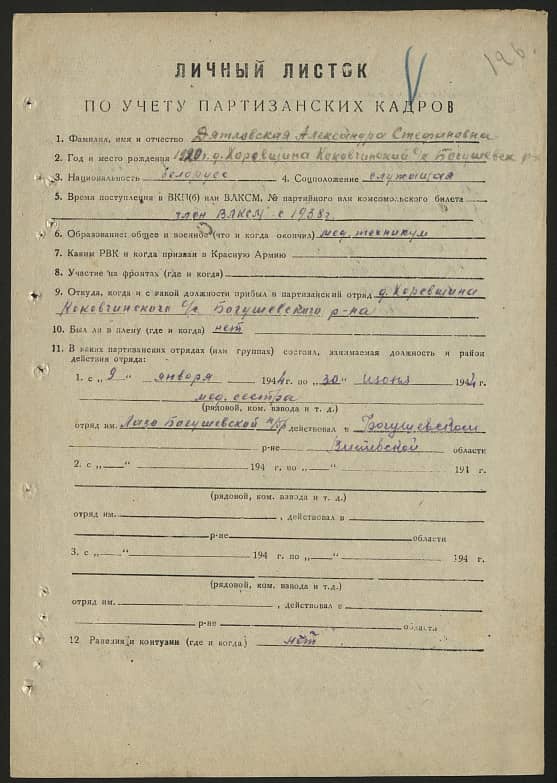 196.
ЛИЧНЫЙ ЛИСТОК
ПО УЧЕТУ ПАРТИЗАНСКИХ КАДРОВ
1. Фамилия, имя и отчество Дятловская Александра Стефановна
2. Год и место рождения 1920 г. д. Хоревщина Коковчинский с/с Богушевск р-
3. Национальность белорус 4. Соцположение служащая
5. Время поступления в ВКП(б) или ВЛКСМ, № партийного или комсомольского билета
член ВЛКСМ с 1938 г.
6. Образование: общее и военное (что и когда окончил) мед. техникум
7. Каким РВК и когда призван в Красную Армию
8. Участие на фронтах (где и когда)
9. Откуда, когда и с какой должности прибыл в партизанский отряд д. Хоревщина
Коковчинского с/с Богушевского р-на
10. Был ли в плену (где и когда) нет
11. В каких партизанских отрядах (или группах) состоял, занимаемая должность и район
действия отряда:
1. с „9 " января 1944 г. по „30" июня 1944 г.
мед. сестра
(рядовой, ком. взвода и т. д.)
отряд им. Лазо Богушевской п/бр действовал в Богушевском
р-не Витебской области
2. с „ " 194 г. по „ " 194 г.
(рядовой, ком. взвода и т. д.)
отряд им. , действовал в
р-не области
3. с „ " 194 г. по „ " 194 г.
(рядовой, ком. взвода и т.д.)
отряд им. , действовал в
р-не области
12 Ранения и контузии (где и когда) нет